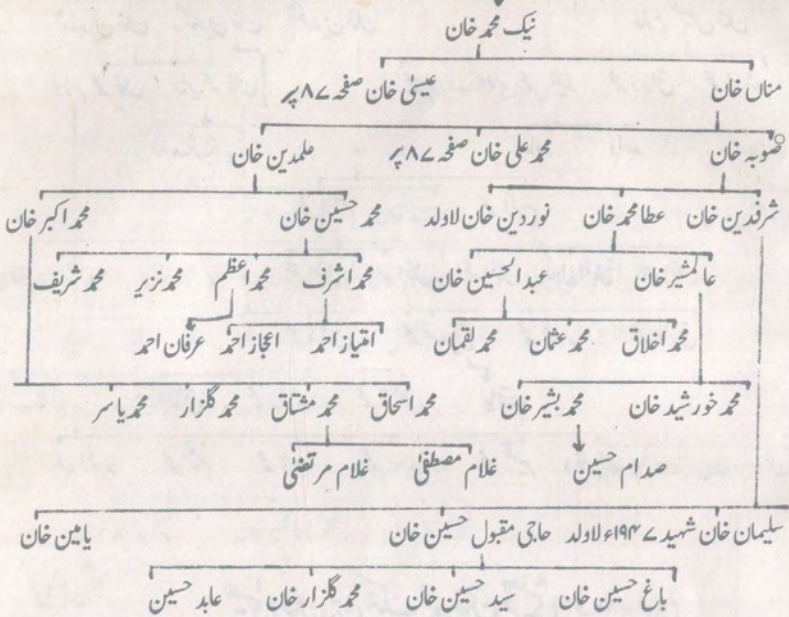 نیک محمد خان
مناں خان عیسیٰ خان صفحہ ۸۷ پر
صوبہ خان محمد علی خان صفحہ ۸۷ پر علمدین خان
شرفدین خان عطا محمد خان نوردین خان لاولد محمد حسین خان محمد اکبر خان
عالمشیر خان عبدالحسین خان محمد اشرف محمد اعظم محمد نزیر محمد شریف
محمد اخلاق محمد عثمان محمد لقمان امتیاز احمد اعجاز احمد عرفان احمد
محمد خورشید خان محمد بشیر خان محمد اسحاق محمد مشتاق محمد گلزار محمد یاسر
صدام حسین غلام مصطفیٰ غلام مرتضیٰ
سلیمان خان شہید ۱۹۴۷ء لاولد حاجی مقبول حسین خان یامین خان
باغ حسین خان سید حسین خان محمد گلزار خان عابد حسین